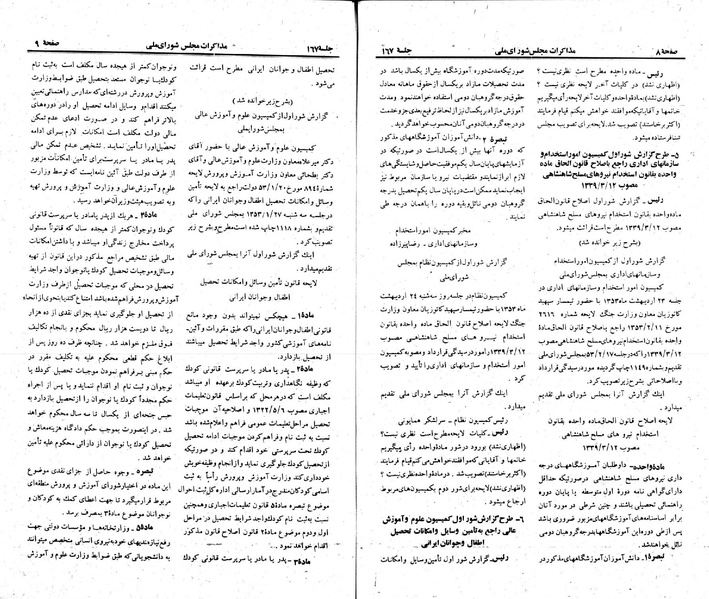 صفحه ۸
مذاکرات مجلس شورای ملی
جلسه ۱۶۷
رئیس ـ ماده واحده مطرح است نظری نیست ؟
(اظهاری نشد) ماده واحده و کلیات آخر لایحه رأی میگیریم
خانمها و آقایانیکه موافقند خواهش میکنم قیام فرمایند
(اکثر برخاستند) تصویب شد. لایحه برای تصویب مجلس
شنا فرستاده میشود.
۵ـ طرح گزارش شور اول کمیسیون امور استخدام و
سازمانهای اداری راجع باصلاح قانون الحاق ماده
واحده بقانون استخدام نیروهای مسلح شاهنشاهی
مصوب ۱۳۳۹/۳/۱۲
رئیس ـ گزارش شور اول اصلاح قانون الحاق
ماده واحده بقانون استخدام نیروهای مسلح شاهنشاهی
مصوب ۱۳۳۹/۳/۱۲ مطرح است قرائت میشود.
(بشرح زیر خوانده شد)
گزارش شور اول از کمیسیون امور استخدام
و سازمانهای اداری بمجلس شورای ملی
کمیسیون امور استخدام و سازمانهای اداری در
جلسه ۲۳ اردیبهشت ماه ۱۳۵۳ با حضور تیمسار سپهبد
کاتوزیان معاون وزارت جنگ لایحه شماره ۲۶۱۶
مورخ ۱۳۵۳/۲/۱۱ راجع باصلاح قانون الحاق ماده
واحده بقانون استخدام نیروهای مسلح شاهنشاهی مصوب
و با اصلاحاتی بشرح زیر تصویب کرد.
اینک گزارش آنرا بمجلس شورای ملی تقدیم
میدارد.
لایحه اصلاح قانون الحاق ماده واحده بقانون
استخدام نیرو های مسلح شاهنشاهی
مصوب ۱۳۳۹/۳/۱۲
ماده واحده ـ داوطلبان آموزشگاههای درجه
داری نیروهای مسلح شاهنشاهی در صورتیکه حداقل
دارای گواهی نامه دورهٔ اول متوسطه یا پایان دوره
راهنمائی تحصیلی باشند و چنین شرطی در مورد آنان
برابر اساسنامه های آموزشگاههای مزبور ضروری باشد
پس از طی دوره این آموزشگاهها بدرجه گروهبان دومی
نائل بخواهند شد.
تبصره ۱ـ دانش آموزان آموزشگاههای مذکور در
صورتیکه مدت دوره آموزشگاه بیش از یکسال باشد در
مدت تحصیلات مازاد بر یکسال از حقوق ماهانه معادل
حقوق درجه گروهبان دومی استفاده خواهند نمود و مدت
آموزش مازاد بر یکسال نیز از لحاظ ترفیع بعدی جزء خدمت
در درجه گروهبان دومی آنان محسوب خواهد گردید.
تبصره ۲ـ دانش آموزان آموزشگاههای مذکور
که دوره آنها بیش از یکسال است در صورتیکه در
آزمایشهای پایان سال یکم موفقیت حاصل و شایستگی های
لازم را از نمایند و مقتضیات نیرو یا سازمان مربوط نیز
ایجاب نماید ممکن است در پایان سال یکم تحصیل بدرجه
گروهبان دومی نائل و بقیه دوره را با همان درجه طی
نمایند.
مخبر کمیسیون امور استخدام
و سازمانهای اداری ـ رضا پیرزاده
گزارش شور اول از کمیسیون نظام بمجلس
شورای ملی
کمیسیون نظام در جلسه روز سه شنبه ۲۴ اردیبهشت
ماه ۱۳۵۳ با حضور تیمسار سپهبد کاتوزیان معاون وزارت
جنگ لایحه اصلاح قانون الحاق ماده واحده بقانون
استخدام نیرو های مسلح شاهنشاهی مصوب
۱۳۳۹/۳/۱۲ را مورد رسیدگی قرار داد و مصوبه کمیسیون
امور استخدام و سازمانهای اداری را تأیید و تصویب
کرد.
اینک گزارش آنرا بمجلس شورای ملی تقدیم
میدارد.
رئیس کمیسیون نظام ـ سرلشکر همایونی
رئیس ـ کلیات لایحه مطرح است نظری نیست؟
(اظهاری نشد) بورود در شور ماده واحده رأی میگیریم
خانمها و آقایانی که موافقند خواهش میکنم قیام فرمایند
(اکثر برخاستند) تصویب شد. در ماده واحده نظری نیست ؟
(اظهاری نشد) لایحه برای شور دوم بکمیسیون های مربوط
ارجاع میشود.
۶ـ طرح گزارش شور اول کمیسیون علوم و آموزش
عالی راجع به تأمین وسایل و امکانات تحصیل
اطفال و جوانان ایرانی
رئیس ـ گزارش شور اول تأمین وسایل و امکانات
جلسه ۱۶۷
مذاکرات مجلس شورای ملی
صفحه ۹
تحصیل اطفال و جوانان ایرانی مطرح است قرائت
می شود.
(بشرح زیر خوانده شد)
گزارش شور اول از کمیسیون علوم و آموزش عالی
بمجلس شورای ملی
کمیسیون علوم و آموزش عالی با حضور آقای
دکتر میرعلاء معاون وزارت علوم و آموزش عالی و آقای
دکتر بطحائی معاون وزارت آموزش و پرورش لایحه
شماره ۸۹۴ مورخ ۵۳/۱/۲۰ دولت راجع به لایحه تأمین
وسائل و امکانات تحصیل اطفال و جوانان ایرانی را که در
جلسه سه شنبه ۱۳۵۳/۱/۲۷ بمجلس شورای ملی
تقدیم و بشماره ۱۱۱۸ چاپ شده است مطرح و بشرح زیر
تصویب کرد.
اینک گزارش شور اول آنرا بمجلس شورای ملی
تقدیم میدارد.
لایحه قانون تأمین وسائل و امکانات تحصیل
اطفال و جوانان ایرانی
ماده۱ـ هیچکس نمیتواند بدون وجود مانع
قانونی اطفال و جوانان ایرانی را که طبق مقررات و آئین-
نامه های آموزشی کشور واجد شرایط تحصیل میباشند
از تحصیل بازدارد.
ماده۲ـ پدر یا مادر یا سرپرست قانونی کودک
که وظیفه نگاهداری و تربیت کودک بر عهده او میباشد
مکلف است که در هر محل که بر اساس قانون تعلیمات
اجباری مصوب ۱۳۲۲/۵/۶ و اصلاحیه آن موجبات
تحصیل مراحل تعلیمات عمومی فراهم و اعلام شده باشد
نسبت به ثبت نام و فراهم کردن موجبات ادامه تحصیل
کودک تحت سرپرستی خود اقدام کند و در صورتیکه
از تحصیل کودک جلوگیری نماید و از انجام وظیفه خویش
خودداری کند وزارت آموزش و پرورش رأساً به ثبت
اسامی کودکان مندرج در آمار ارسالی اداره کل ثبت احوال
موضوع تبصره ماده۵ قانون تعلیمات اجباری و همچنین
نسبت به ثبت نام کودک واجد شرایط تحصیل در مراحل
اول و دوم موضوع ماده۲ قانون اصلاح قانون مذکور
اقدام خواهد نمود.
ماده۳ـ پدر یا مادر یا سرپرست قانونی کودک
و نوجوان کمتر از هیجده سال مکلف است به ثبت نام
کودک یا نوجوان مستعد تحصیل طبق ضوابط وزارت
آموزش و پرورش در رشته ای که مدارس راهنمائی تعیین
میکنند اقدام و وسایل ادامه تحصیل او را در دوره های
بالاتر فراهم کند و در صورت ادعای عدم تمکن
مالی دولت مکلف است امکانات لازم برای ادامه
تحصیل او را تأمین نماید. تشخیص عدم تمکن مالی
پدر یا مادر یا سرپرست برای تأمین امکانات مزبور
از طرف دولت طبق آئین نامه ایست که توسط وزارت
علوم و آموزش عالی و وزارت آموزش و پرورش تهیه
و به تصویب هیئت وزیران خواهد رسید.
ماده۴ـ هریک از پدر یا مادر یا سرپرست قانونی
کودک و نوجوان کمتر از هیجده سال که قانوناً مسئول
پرداخت مخارج زندگی او میباشد و با داشتن امکانات
مالی طبق تشخیص مراجع مذکور در این قانون از تهیه
وسائل و موجبات تحصیل کودک یا نوجوان واجد شرایط
تحصیل در محلی که موجبات تحصیل از طرف وزارت
آموزش و پرورش فراهم شده باشد امتناع کند یا بنحوی از انحاء
از تحصیل او جلوگیری نماید بجزای نقدی از ده هزار
ریال تا دویست هزار ریال محکوم و بانجام تکالیف
فوق ملزم خواهد شد. چنانچه ظرف ده روز پس از
ابلاغ حکم قطعی محکوم علیه به تکلیف مقرر در
حکم مبنی بر فراهم نمودن موجبات تحصیل کودک یا
نوجوان و ثبت نام او اقدام ننماید و یا پس از اجراء
حکم مجدداً کودک یا نوجوان را از تحصیل بازدارد به
حبس جنحه ای از یکسال تا سه سال محکوم خواهد
شد. در اینصورت بموجب حکم دادگاه هزینه معاش و
تحصیل کودک یا نوجوان از دارائی محکوم علیه تأمین
خواهد شد.
تبصره ـ وجوه حاصل از جزای نقدی موضوع
این ماده در اختیار شورای آموزش و پرورش منطقه ای
مربوط قرار میگیرد تا جهت اعطای کمک به کودکان و
نوجوانان موضوع ماده۳ بمصرف برسد.
ماده۵ـ وزارتخانه ها و مؤسسات دولتی جهت
رفع نیازمندیهای خود به نیروی انسانی متخصص میتوانند
به دانشجویانی که طبق ضوابط وزارت علوم و آموزش